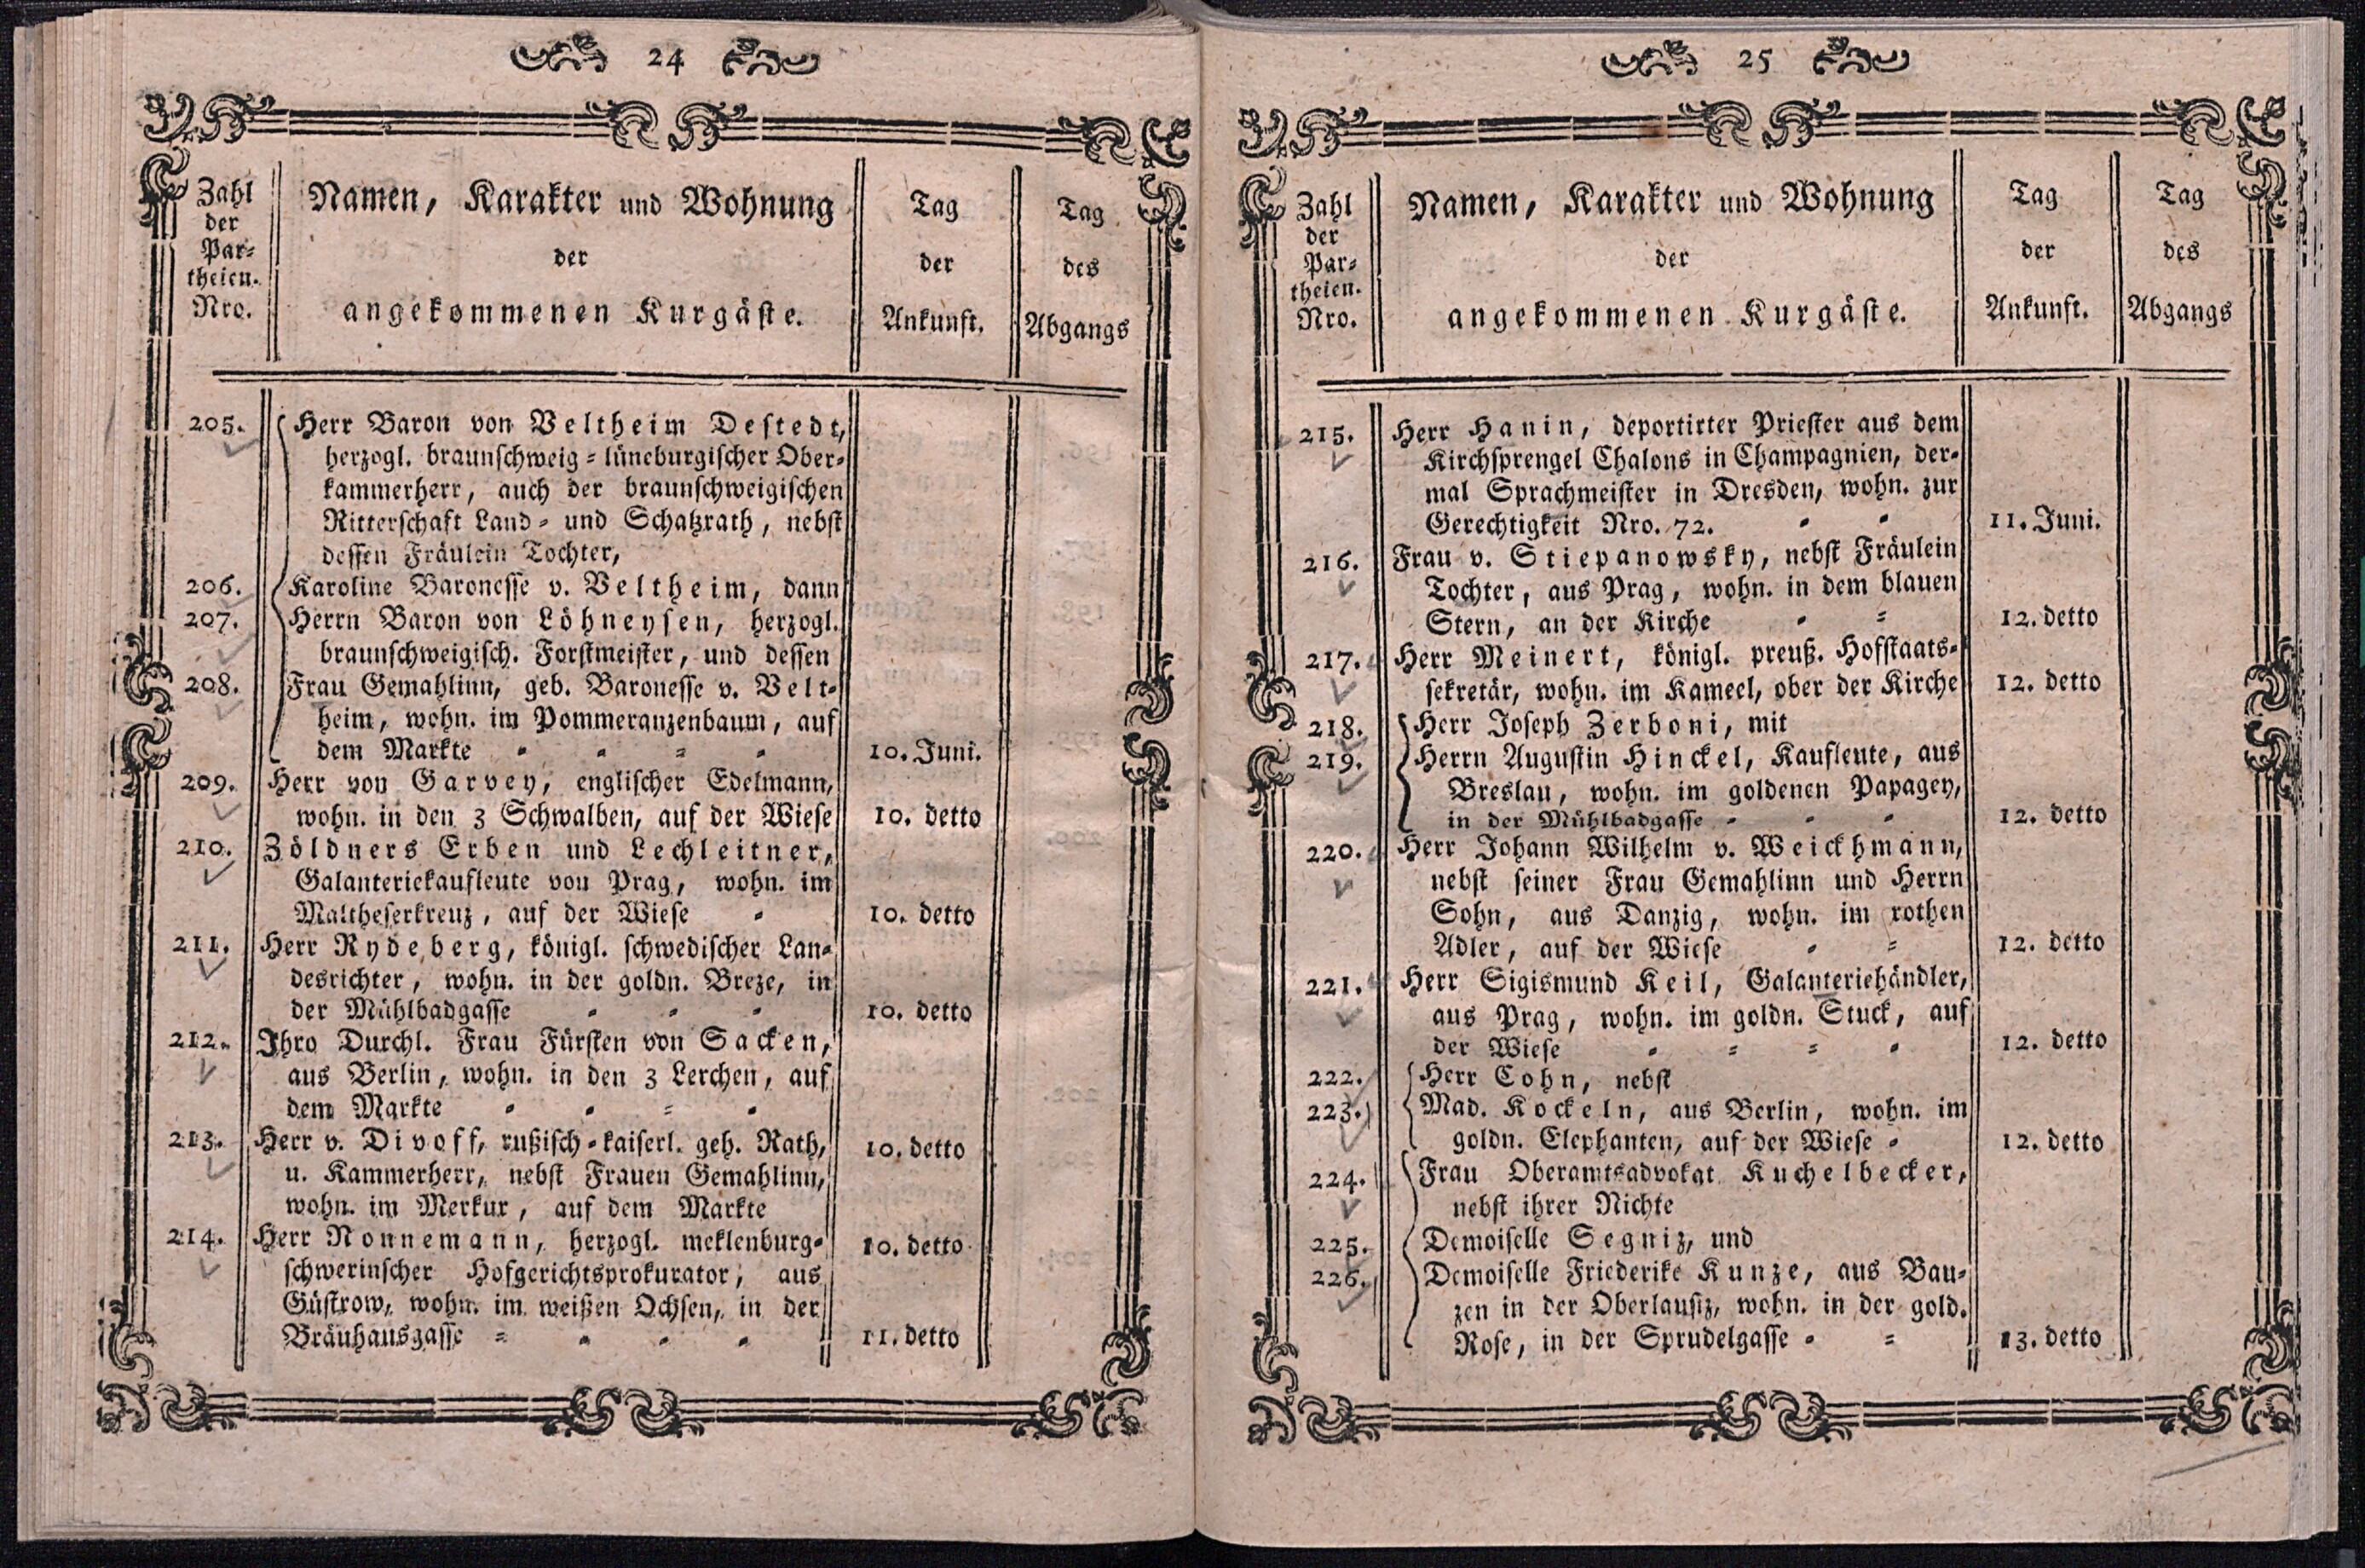 24
Zahl
der
Par=
theien.
Nro.
Namen, Karakter und Wohnung
der
angekommenen Kurgäste.
Tag
der
Ankunft.
Tag
des
Abgangs
205. Herr Baron von Veltheim Destedt,
herzogl. braunschweig=lüneburgischer Ober=
kammerherr, auch der braunschweigischen
Ritterschaft Land= und Schatzrath, nebst
dessen Fräulein Tochter,
206. Karoline Baronesse v. Veltheim, dann
207. Herrn Baron von Löhneysen, herzogl.
braunschweigisch. Forstmeister, und dessen
208. Frau Gemahlinn, geb. Baronesse v. Velt=
heim, wohn. im Pommeranzenbaum, auf
dem Markte = = = = 10. Juni.
209. Herr von Garvey, englischer Edelmann,
wohn. in den 3 Schwalben, auf der Wiese 10. detto
210. Zöldners Erben und Lechleitner,
Galanteriekaufleute von Prag, wohn. im
Maltheserkreuz, auf der Wiese = 10. detto
211. Herr Rydeberg, königl. schwedischer Lan=
desrichter, wohn. in der goldn. Breze, in
der Mühlbadgasse = = = 10. detto
212. Ihro Durchl. Frau Fürsten von Sacken,
aus Berlin, wohn. in den 3 Lerchen, auf
dem Markte = = = =
213. Herr v. Divoff, rußisch=kaiserl. geh. Rath, 10. detto
u. Kammerherr, nebst Frauen Gemahlinn,
wohn. im Merkur, auf dem Markte
214. Herr Nonnemann, herzogl. meklenburg= 10. detto
schwerinscher Hofgerichtsprokurator, aus
Güstrow, wohn. im weißen Ochsen, in der
Bräuhausgasse = = = = 11. detto
25
Zahl
der
Par=
theien.
Nro.
Namen, Karakter und Wohnung
der
angekommenen Kurgäste.
Tag
der
Ankunft.
Tag
des
Abgangs
215. Herr Hanin, deportirter Priester aus dem
Kirchsprengel Chalons in Champagnien, der=
mal Sprachmeister in Dresden, wohn. zur
Gerechtigkeit Nro. 72. = = 11. Juni.
216. Frau v. Stiepanowsky, nebst Fräulein
Tochter, aus Prag, wohn. in dem blauen
Stern, an der Kirche = = 12. detto
217. Herr Meinert, königl. preuß. Hofstaats=
sekretär, wohn. im Kameel, ober der Kirche 12. detto
218. Herr Joseph Zerboni, mit
219. Herrn Augustin Hinckel, Kaufleute, aus
Breslau, wohn. im goldenen Papagey,
in der Mühlbadgasse = = = 12. detto
220. Herr Johann Wilhelm v. Weickhmann,
nebst seiner Frau Gemahlinn und Herrn
Sohn, aus Danzig, wohn. im rothen
Adler, auf der Wiese = = 12. detto
221. Herr Sigismund Keil, Galanteriehändler,
aus Prag, wohn. im goldn. Stuck, auf
der Wiese = = = = 12. detto
222. Herr Cohn, nebst
223. Mad. Kockeln, aus Berlin, wohn. im
goldn. Elephanten, auf der Wiese = 12. detto
224. Frau Oberamtsadvokat Kuchelbecker,
nebst ihrer Nichte
225. Demoiselle Segniz, und
226. Demoiselle Friederike Kunze, aus Bau=
zen in der Oberlausiz, wohn. in der gold.
Rose, in der Sprudelgasse = = 13. detto